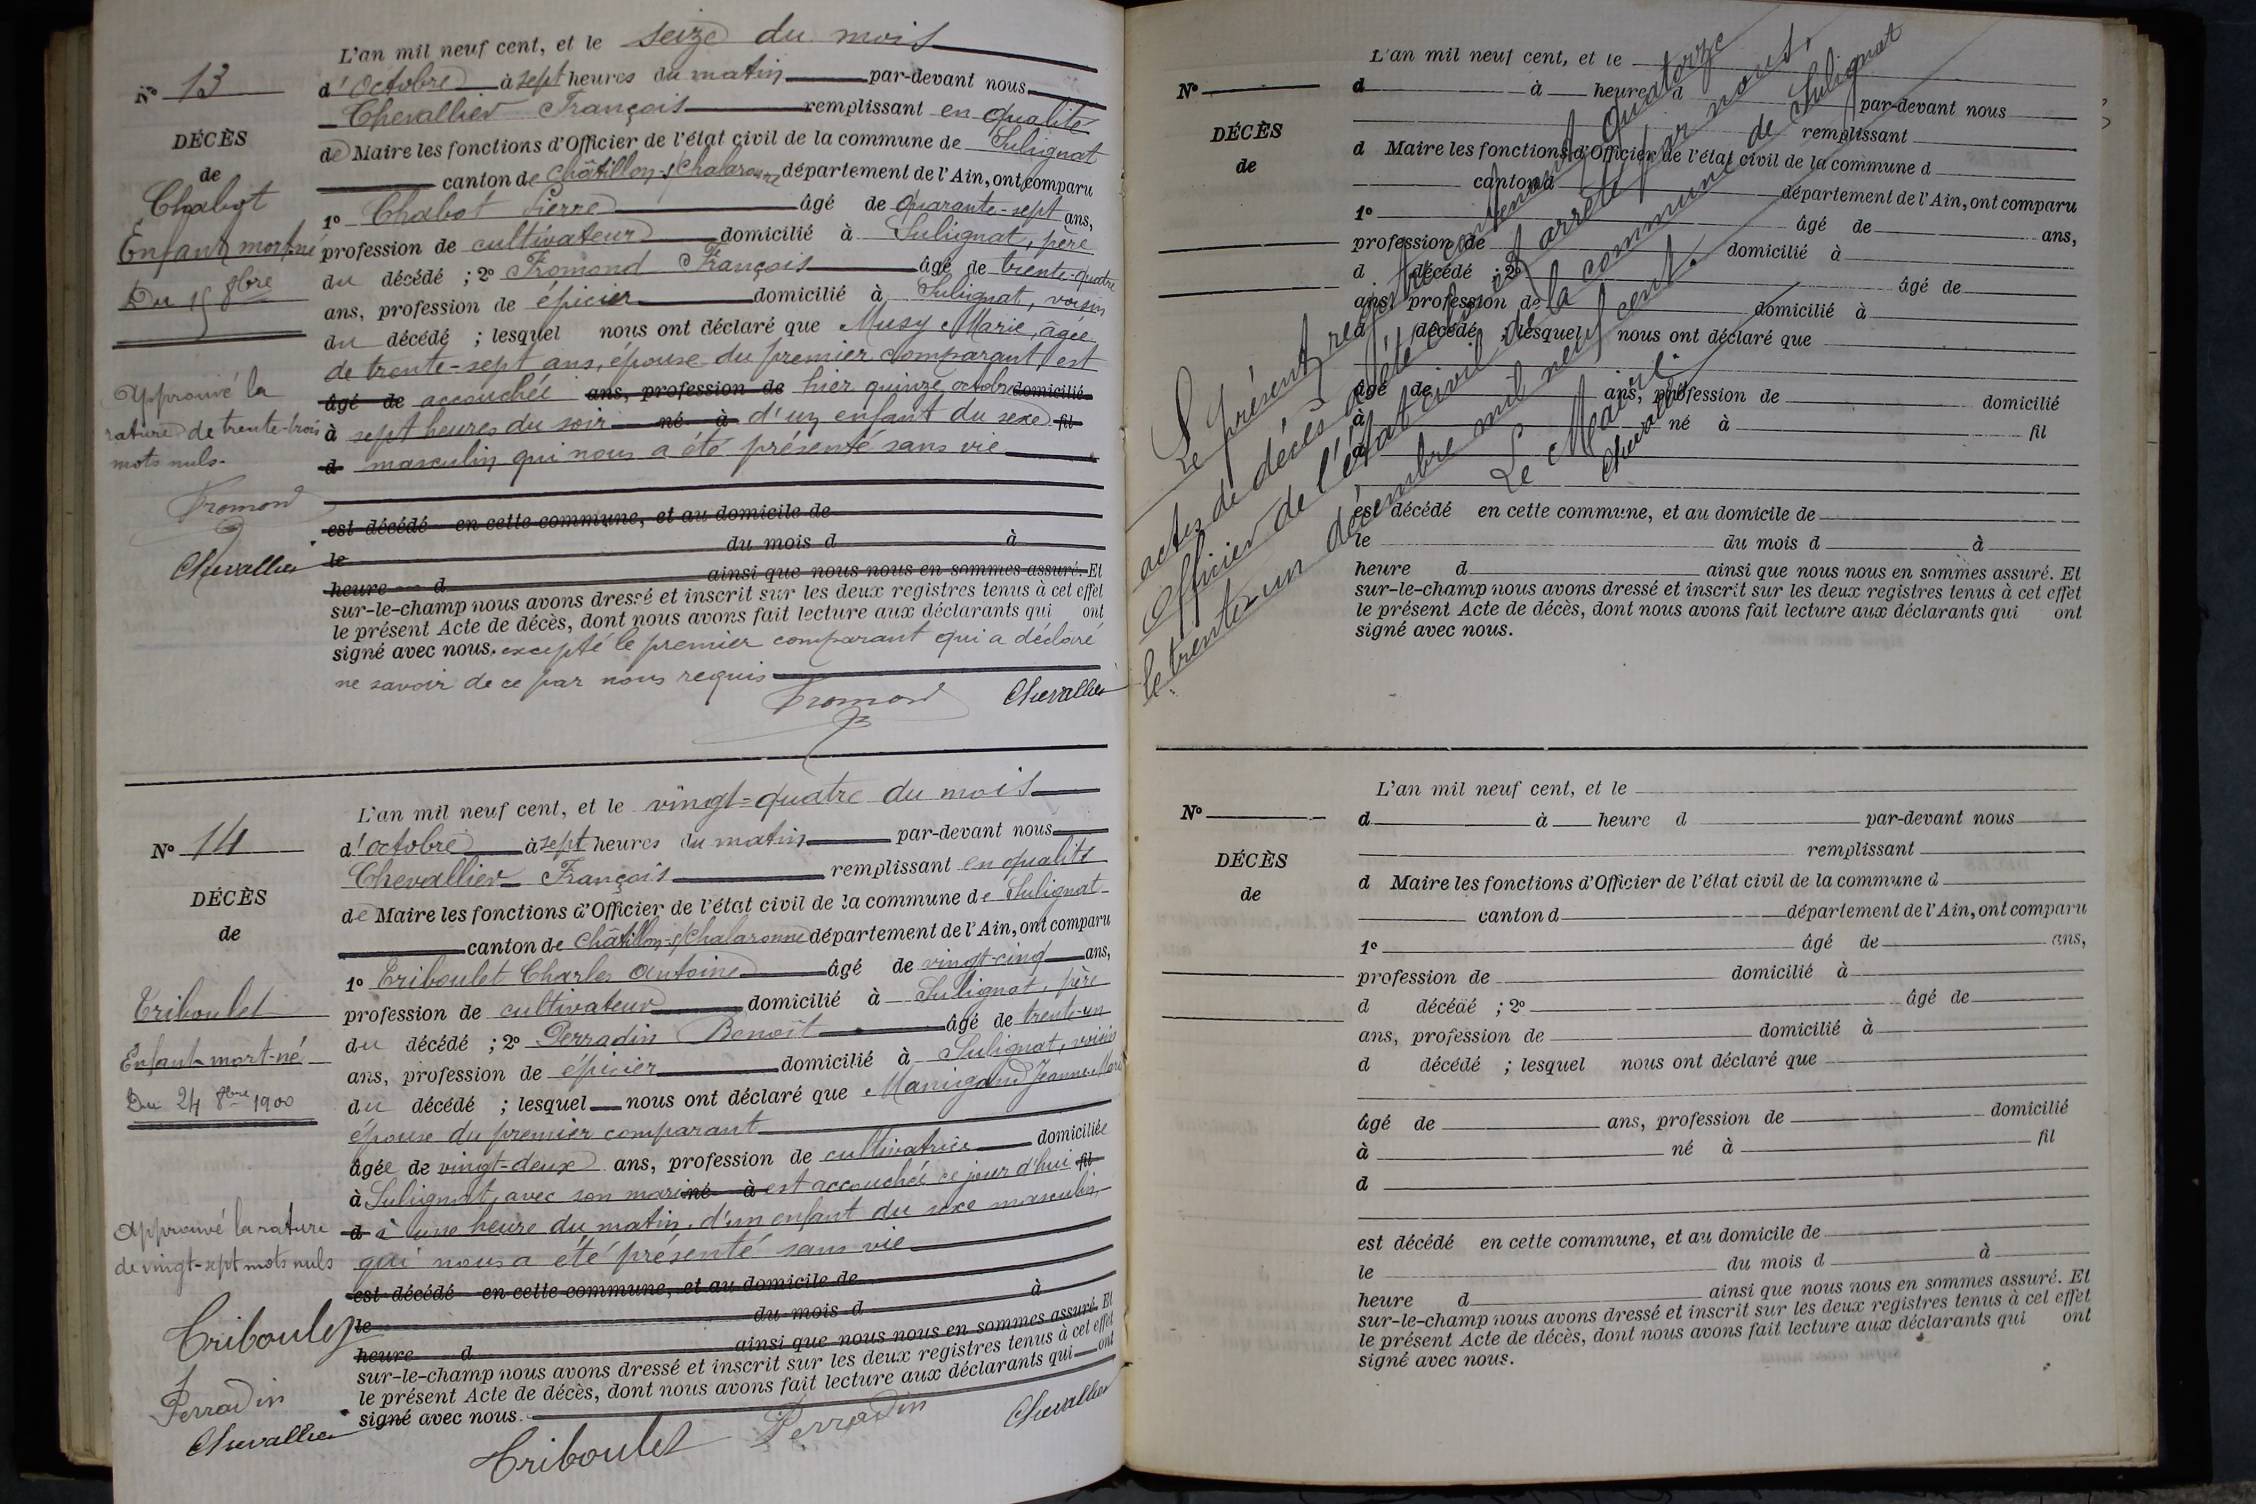 L'an mil neuf cent, et le seize du mois
N° 13
d'octobre à sept heures du matin par-devant nous
Chevallier François remplissant en qualité
DÉCÈS
de Maire les fonctions d'Officier de l'état civil de la commune de Sulignat
de
canton de Châtillon-s/Chalaronne département de l'Ain, ont comparu
Chabot
1° Chabot Pierre âgé de quarante-sept ans,
Enfant mort-né
profession de cultivateur domicilié à Sulignat, père
Du 15 8bre
du décédé ; 2° Fromond François âgé de trente-quatre
ans, profession de épicier domicilié à Sulignat, voisin
du décédé ; lesquel nous ont déclaré que Musy Marie, âgée
de trente-sept ans, épouse du premier comparant est
âgé de accouchée ans, profession de hier quinze octobre domicilié
à sept heures du soir né à d'un enfant du sexe fil
d masculin qui nous a été présenté sans vie
Approuvé la
rature de trente-trois
mots nuls.
Fromond
Chevallier
est décédé en cette commune, et au domicile de
le du mois d à
heure d ainsi que nous nous en sommes assuré. Et
sur-le-champ nous avons dressé et inscrit sur les deux registres tenus à cet effet
le présent Acte de décès, dont nous avons fait lecture aux déclarants qui ont
signé avec nous. excepté le premier comparant qui a déclaré
ne savoir de ce par nous requis
Fromond Chevallier
L'an mil neuf cent, et le vingt-quatre du mois
N° 14
d'octobre à sept heures du matin par-devant nous
Chevallier François remplissant en qualité
DÉCÈS
de Maire les fonctions d'Officier de l'état civil de la commune de Sulignat
de
canton de Châtillon-s/Chalaronne département de l'Ain, ont comparu
Triboulet
1° Triboulet Charles Antoine âgé de vingt-cinq ans,
profession de cultivateur domicilié à Sulignat, père
Enfant mort-né
du décédé ; 2° Perradin Benoit âgé de trente-un
Du 24 8bre 1900
ans, profession de épicier domicilié à Sulignat, voisin
du décédé ; lesquel nous ont déclaré que Manigand Jeanne-Marie
épouse du premier comparant
âgée de vingt-deux ans, profession de cultivatrice domiciliée
à Sulignat, avec son mari né à est accouchée ce jour d'hui fil
d à une heure du matin, d'un enfant du sexe masculin
qui nous a été présenté sans vie
Approuvé la rature
de vingt-sept mots nuls
Triboulet
Perradin
Chevallier
est décédé en cette commune, et au domicile de
le du mois d à
heure d ainsi que nous nous en sommes assuré. Et
sur-le-champ nous avons dressé et inscrit sur les deux registres tenus à cet effet
le présent Acte de décès, dont nous avons fait lecture aux déclarants qui ont
signé avec nous.
Triboulet Perradin Chevallier
L'an mil neuf cent, et le
N°
d à heure d par-devant nous
remplissant
DÉCÈS
d Maire les fonctions d'Officier de l'état civil de la commune d
de
canton d département de l'Ain, ont comparu
1° âgé de ans,
profession de domicilié à
d décédé ; 2° âgé de
ans, profession de domicilié à
d décédé ; lesquel nous ont déclaré que
âgé de ans, profession de domicilié
à né à fil
d
est décédé en cette commune, et au domicile de
le du mois d à
heure d ainsi que nous nous en sommes assuré. Et
sur-le-champ nous avons dressé et inscrit sur les deux registres tenus à cet effet
le présent Acte de décès, dont nous avons fait lecture aux déclarants qui ont
signé avec nous.
Le présent registre contenant quatorze
actes de décès a été clos et arrêté par nous,
Officier de l'état civil de la commune de Sulignat
le trente-un décembre mil neuf cent.
Le Maire.
Chevallier
L'an mil neuf cent, et le
N°
d à heure d par-devant nous
remplissant
DÉCÈS
d Maire les fonctions d'Officier de l'état civil de la commune d
de
canton d département de l'Ain, ont comparu
1° âgé de ans,
profession de domicilié à
d décédé ; 2° âgé de
ans, profession de domicilié à
d décédé ; lesquel nous ont déclaré que
âgé de ans, profession de domicilié
à né à fil
d
est décédé en cette commune, et au domicile de
le du mois d à
heure d ainsi que nous nous en sommes assuré. Et
sur-le-champ nous avons dressé et inscrit sur les deux registres tenus à cet effet
le présent Acte de décès, dont nous avons fait lecture aux déclarants qui ont
signé avec nous.